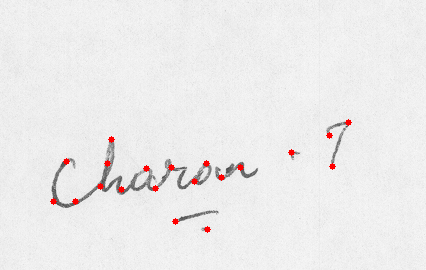 Charon · T